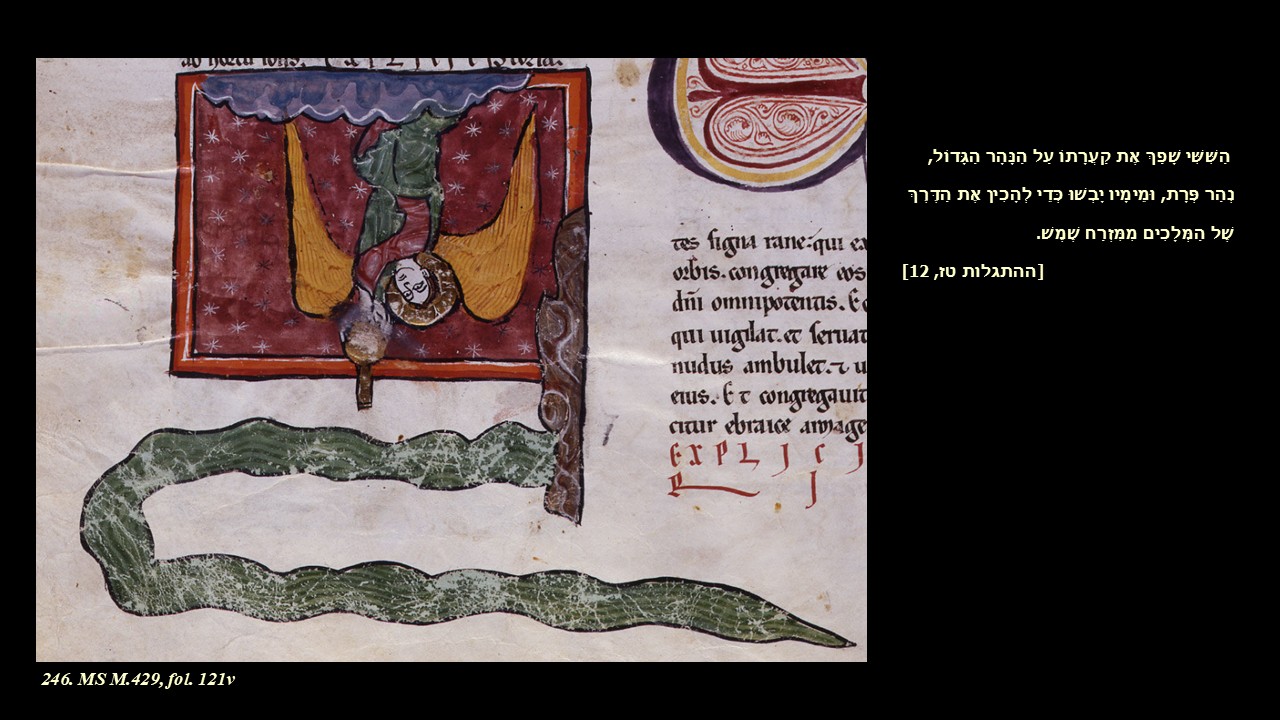 tes signa rane. qui ex
orbis. congregare eos
qui uigilat. et seruat
nudus ambulet.
eius. Et congregauit
citur ebraice
EXPLICI
הַשִּׁשִּׁי שָׁפַךְ אֶת קַעֲרָתוֹ עַל הַנָּהָר הַגָּדוֹל,
נְהַר פְּרָת, וּמֵימָיו יָבְשׁוּ כְּדֵי לְהָכִין אֶת הַדֶּרֶךְ
שֶׁל הַמְּלָכִים מִמִּזְרַח שֶׁמֶשׁ.
[ההתגלות טז, 12]
246. MS M.429, fol. 121v